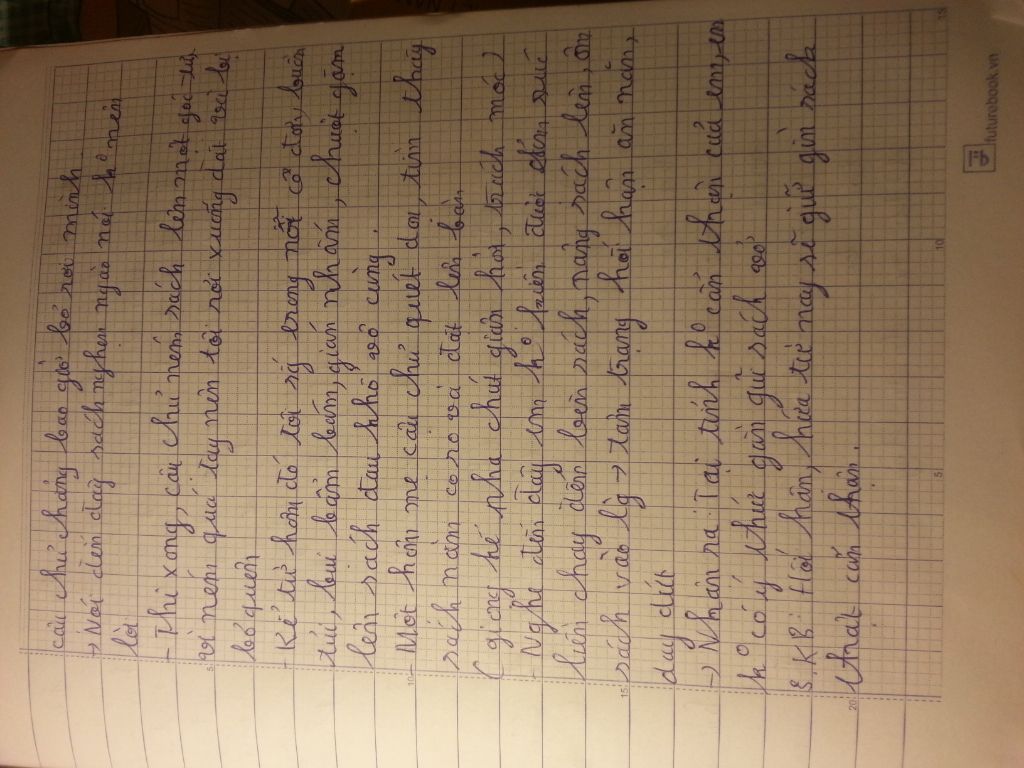 cậu chủ chẳng bao giờ bỏ rơi mình
→ Nói đến đây sách nghẹn ngào nói k° nên
lời
- Thi xong, cậu chủ ném sách lên một gác
vì ném quá tay nên tôi rơi xuống dưới và bị
bỏ quên
- Kể từ hôm đó tôi sống trong nỗi cô đơn, buồn
tủi, bụi bẩn bám, gián nhấm, chuột gặm
lên sách đau khổ vô cùng.
- Một hôm mẹ cậu chủ quét dọn, tìm thấy
sách nằm co ro và đặt lên bàn
( giọng kể nhẹ chút giận hờn, trách móc)
- Nghe đến đây em k° kiềm được cảm xúc
liền chạy đến bên sách, nâng sách lên, ôm
sách vào lg → tâm trạng hối hận ăn năn,
day dứt
→ Nhận ra: Tại tính k° cẩn thận của em,
k° có ý thức gìn giữ sách vở
3. KB: Hối hận, hứa từ nay sẽ giữ gìn sách
thật cẩn thận.
5
10
15
20
5
10
15
tuturubook.vn